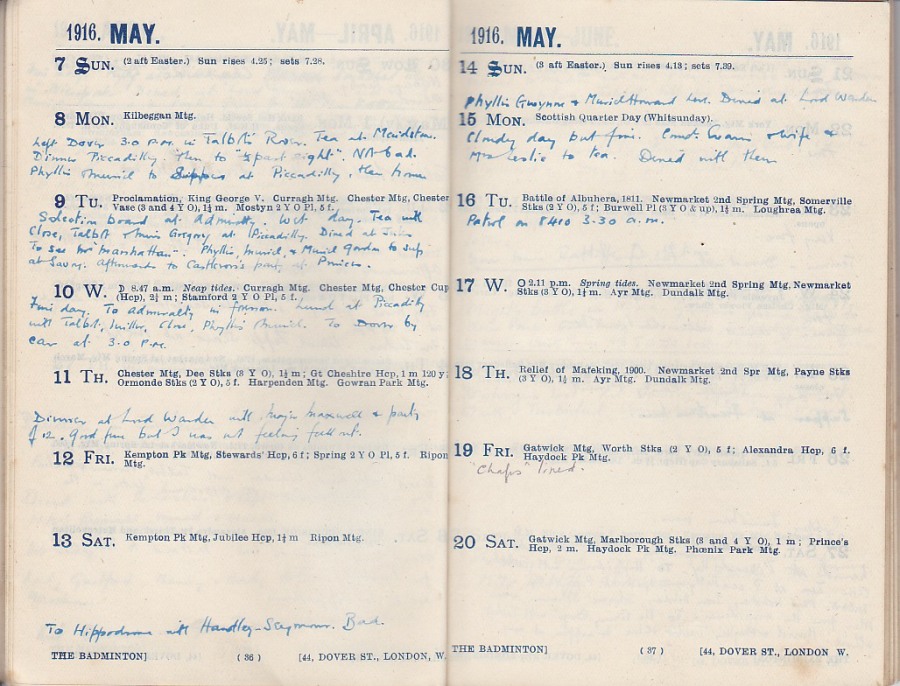 1916. MAY.
7 SUN. (2 aft Easter.) Sun rises 4.25; sets 7.28.
8 MON. Kilbeggan Mtg.
Left Dover 3.0 p.m. in Talbot's Tea at Maidstone.
Dinner Piccadilly. Then to "½ past Eight". Not bad.
Phyllis Muriel to Supper at Piccadilly, then home
9 TU. Proclamation, King George V. Curragh Mtg. Chester Mtg, Chester
Vase (3 and 4 Y O), 1½ m. Mostyn 2 Y O Pl, 5 f.
Selection board at Admiralty. Wet day. Tea with
Close, Talbot & Gregory at Piccadilly. Dined at
To see "Mr Manhattan". Phyllis, Muriel, & Muriel Gordon to sup
at Savoy. Afterwards to party at Princes.
10 W. ☽ 8.47 a.m. Neap tides. Curragh Mtg. Chester Mtg, Chester Cup
(Hcp), 2¼ m; Stamford 2 Y O Pl, 5 f.
Fine day. To Admiralty in forenoon. Lunch at Piccadilly
with Talbot, Close, Phyllis Muriel. To Dover by
car at 3.0 p.m.
11 TH. Chester Mtg, Dee Stks (3 Y O), 1½ m; Gt Cheshire Hcp, 1 m 120 y;
Ormonde Stks (2 Y O), 5 f. Harpenden Mtg. Gowran Park Mtg.
Dinner at Lord Warden with Major Maxwell & party
of 12. Good fun but I was not feeling full out.
12 FRI. Kempton Pk Mtg, Stewards' Hcp, 6 f; Spring 2 Y O Pl, 5 f. Ripon
Mtg.
13 SAT. Kempton Pk Mtg, Jubilee Hcp, 1¼ m Ripon Mtg.
To Hippodrome with Handley-Seymour. Bad.
THE BADMINTON] (36) [44, DOVER ST., LONDON, W.
1916. MAY.
14 SUN. (3 aft Easter.) Sun rises 4.13; sets 7.39.
Phyllis Gwynne & Muriel Howard here. Dined at Lord Warden
15 MON. Scottish Quarter Day (Whitsunday).
Cloudy day but fine. Comdt Evans & wife &
Mrs Leslie to tea. Dined with them
16 TU. Battle of Albuhera, 1811. Newmarket 2nd Spring Mtg, Somerville
Stks (2 Y O), 5 f; Burwell Pl (3 Y O & up), 1½ m. Loughrea Mtg.
Patrol on 8410 3.30 a.m.
17 W. ○ 2.11 p.m. Spring tides. Newmarket 2nd Spring Mtg, Newmarket
Stks (3 Y O), 1¼ m. Ayr Mtg. Dundalk Mtg.
18 TH. Relief of Mafeking, 1900. Newmarket 2nd Spr Mtg, Payne Stks
(3 Y O), 1½ m. Ayr Mtg. Dundalk Mtg.
19 FRI. Gatwick Mtg, Worth Stks (2 Y O), 5 f; Alexandra Hcp, 6 f.
Haydock Pk Mtg.
"Chaps"
20 SAT. Gatwick Mtg, Marlborough Stks (3 and 4 Y O), 1 m; Prince's
Hcp, 2 m. Haydock Pk Mtg. Phœnix Park Mtg.
THE BADMINTON] (37) [44, DOVER ST., LONDON W.